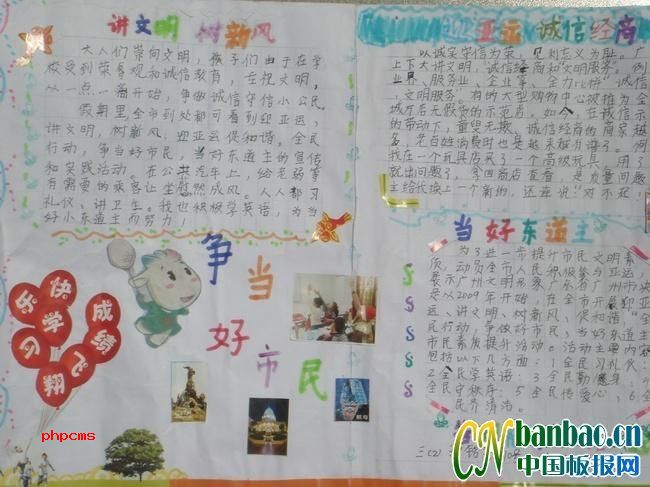 讲文明 树新风
大人们崇向文明，孩子们由于在学
校受到荣辱观和诚信教育，在祝文明，
以一点一滴开始，争做诚信守信小公民。
假期里全市到处都可看到迎亚运，
讲文明，树新风，迎亚运促和谐。全民
行动，争当好市民，当好东道主的宣传
和实践活动。在公共汽车上，给老弱等
有需要的乘客让坐蔚然成风。人人都习
礼仪、讲卫生。我也积极学英语，为当
好小东道主而努力！
迎亚运 诚信经商
以诚实守信为荣，见利忘义为耻。广
上下大讲文明，诚信经商和文明服务"。例
业界、服务业、企业等，全力比拼"诚信
，文明服务"有的大型购物中心被推为全
城厅店无假货的示范店。如今，在诚信示
的带动下，童叟无欺、诚信经商的商家越
越多，老百姓消费时也是越来越有谱了。例
我在一个玩具店买了一个高级玩具，用了
就出问题了，拿回商店查看，是质量问题
主给我换上一个新的，还连说"对不起，
当好东道主
为了进一步提升市民文明素
质，动员全市人民积极参与亚运，
展示广州文明形象，广东省广州市决
定从2009年开始，在全市开展迎亚
运、讲文明、树新风、促和谐"全
民行动，争做好市民，当好东道主
市民素质提升活动。活动主要内容
包括以下几方面：1全民习礼仪.
2全民学英语：3全民勤健身.4
全民守秩序：5全民传爱心，6全
民齐清洁。
争当好市民
快乐学习
成绩飞翔
phpcms
三(2)
CN banbao.cn
中国板报网